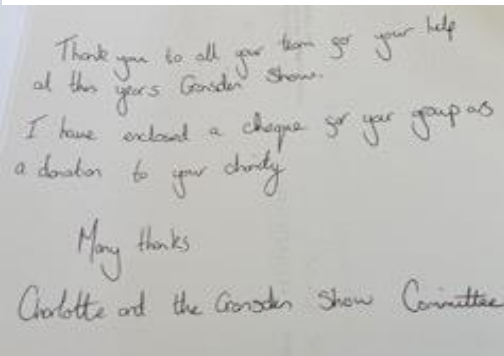 Thank you to all your team for your help
at this years Gransden Show.
I have enclosed a cheque for your group as
a donation to your charity
Many thanks
Charlotte and the Gransden Show Committee